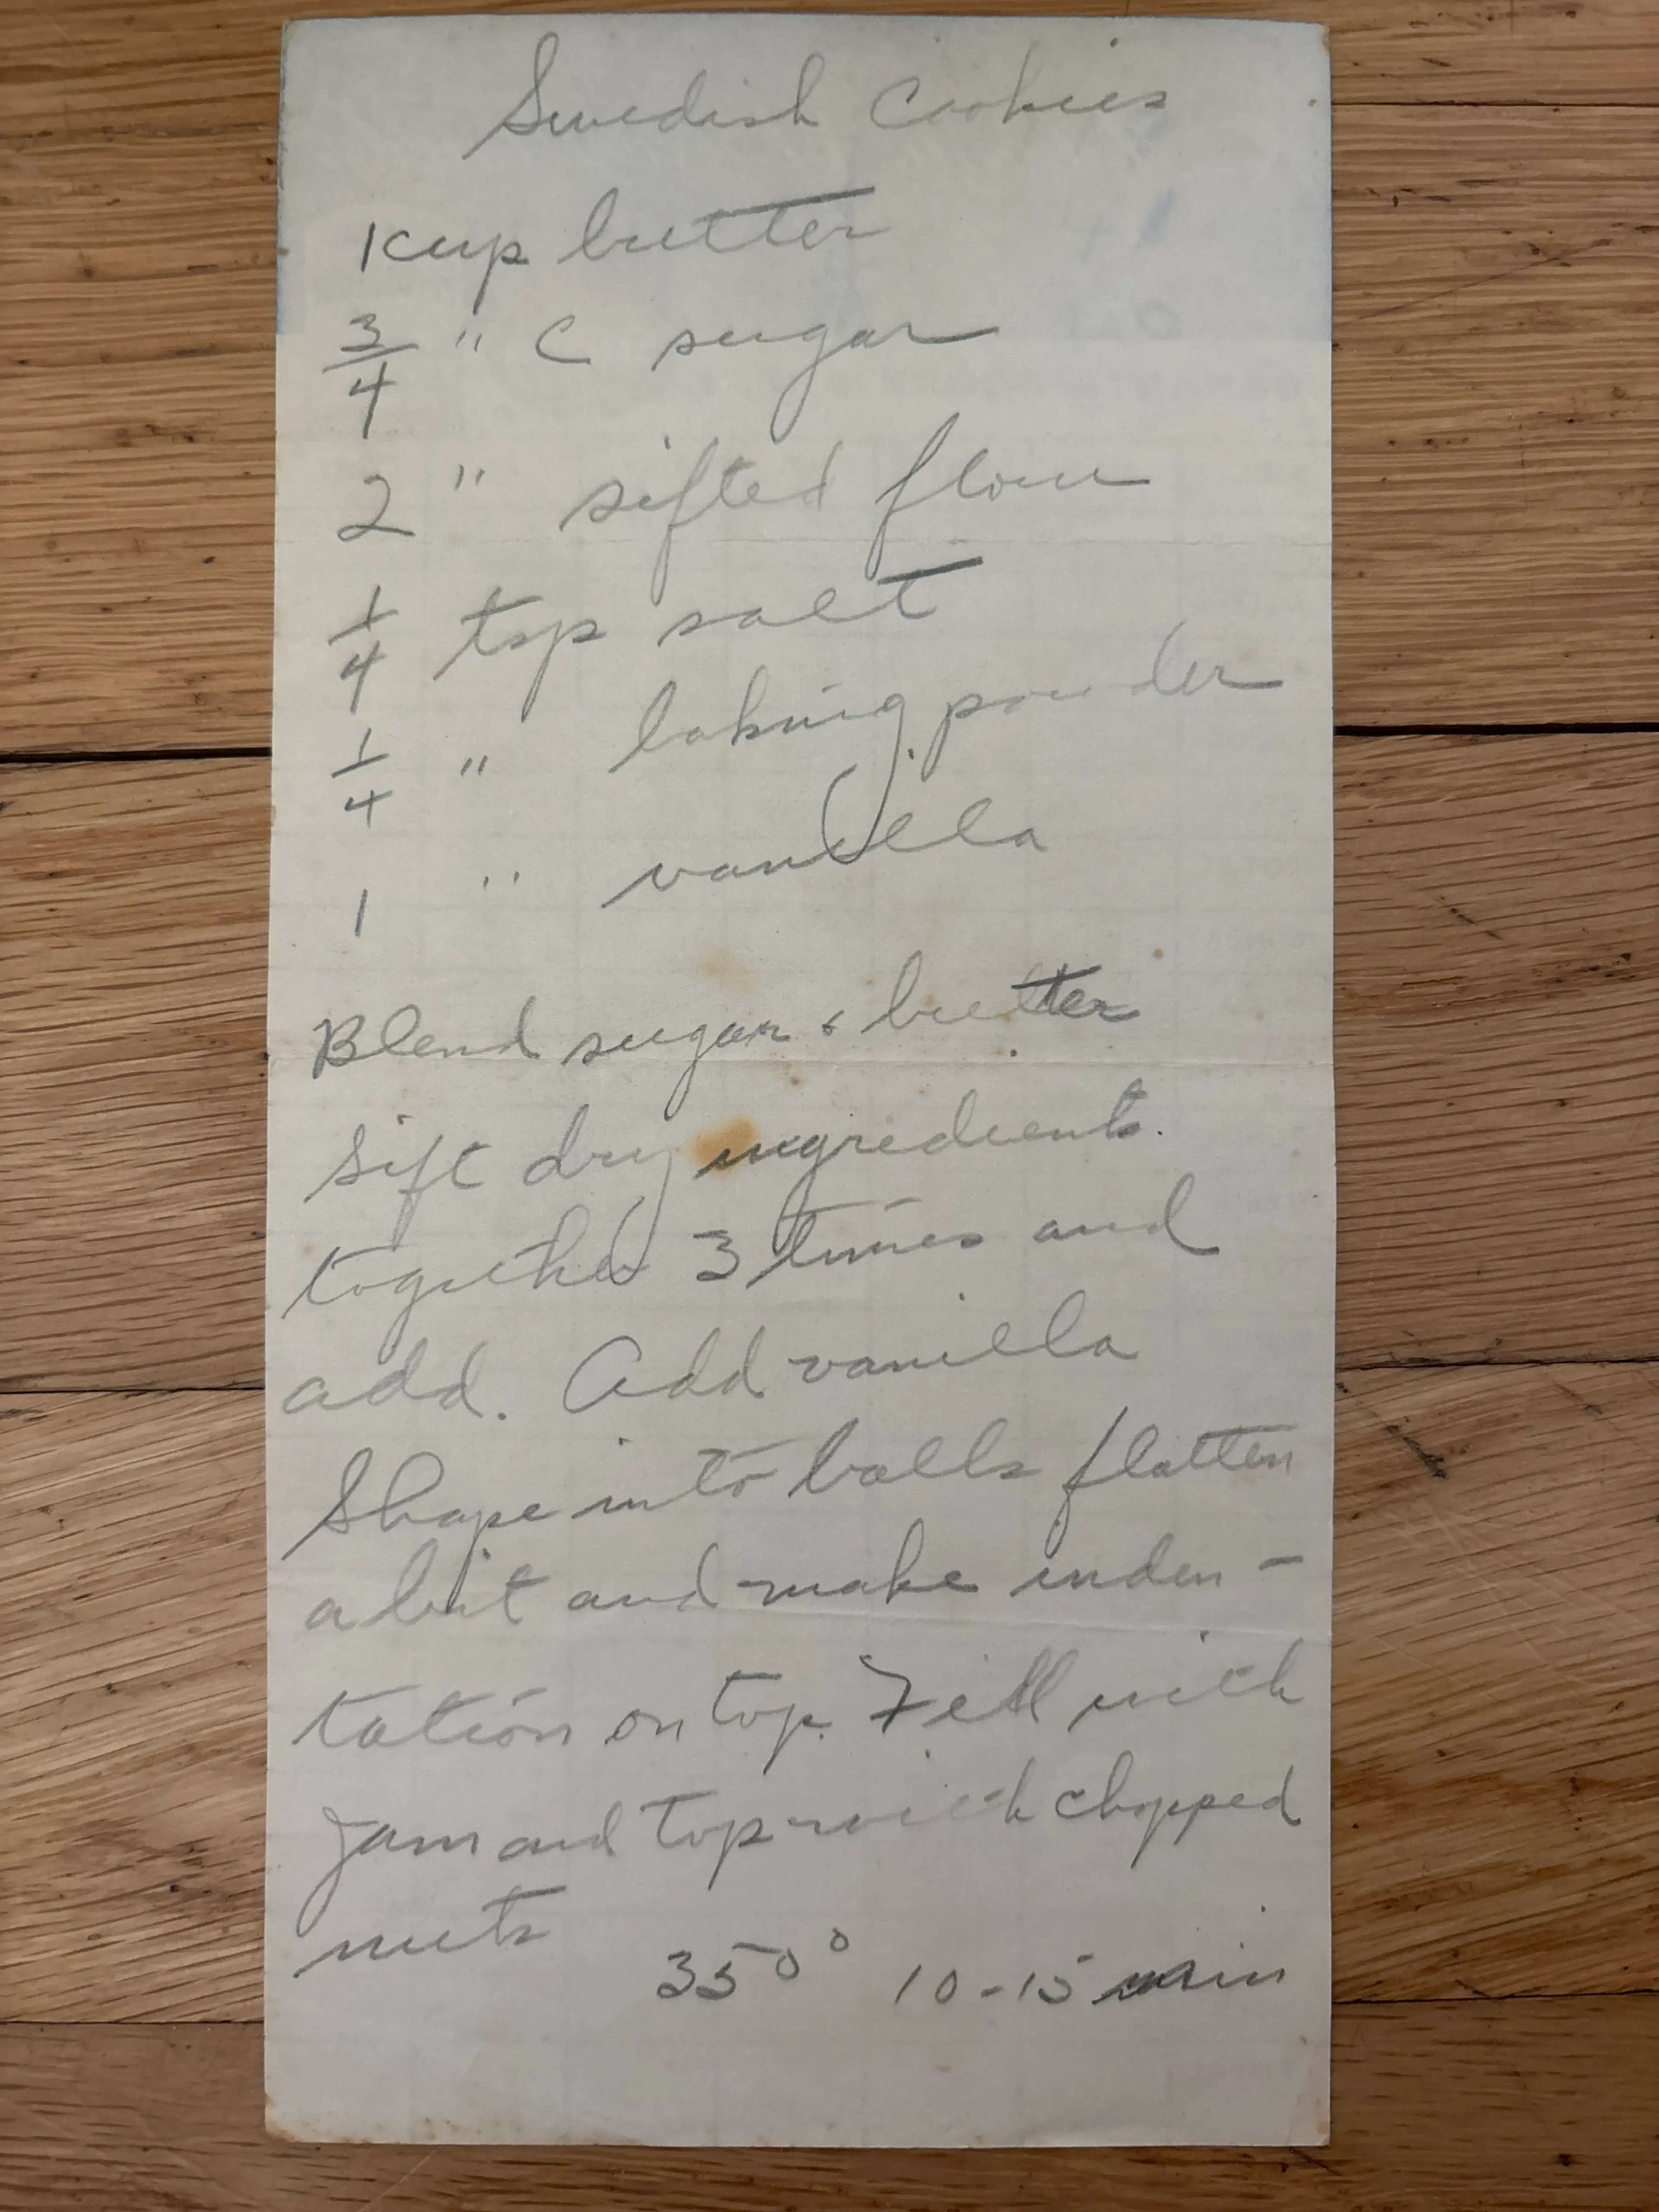 Swedish Cookies
1 cup butter
3/4 " C sugar
2 " sifted flour
1/4 tsp salt
1/4 " baking powder
1 " vanilla
Blend sugar & butter
sift dry ingredients.
together 3 times and
add. Add vanilla
Shape into balls flatten
a bit and make inden-
tation on top. Fill with
jam and top with chopped
nuts 350° 10-15 min